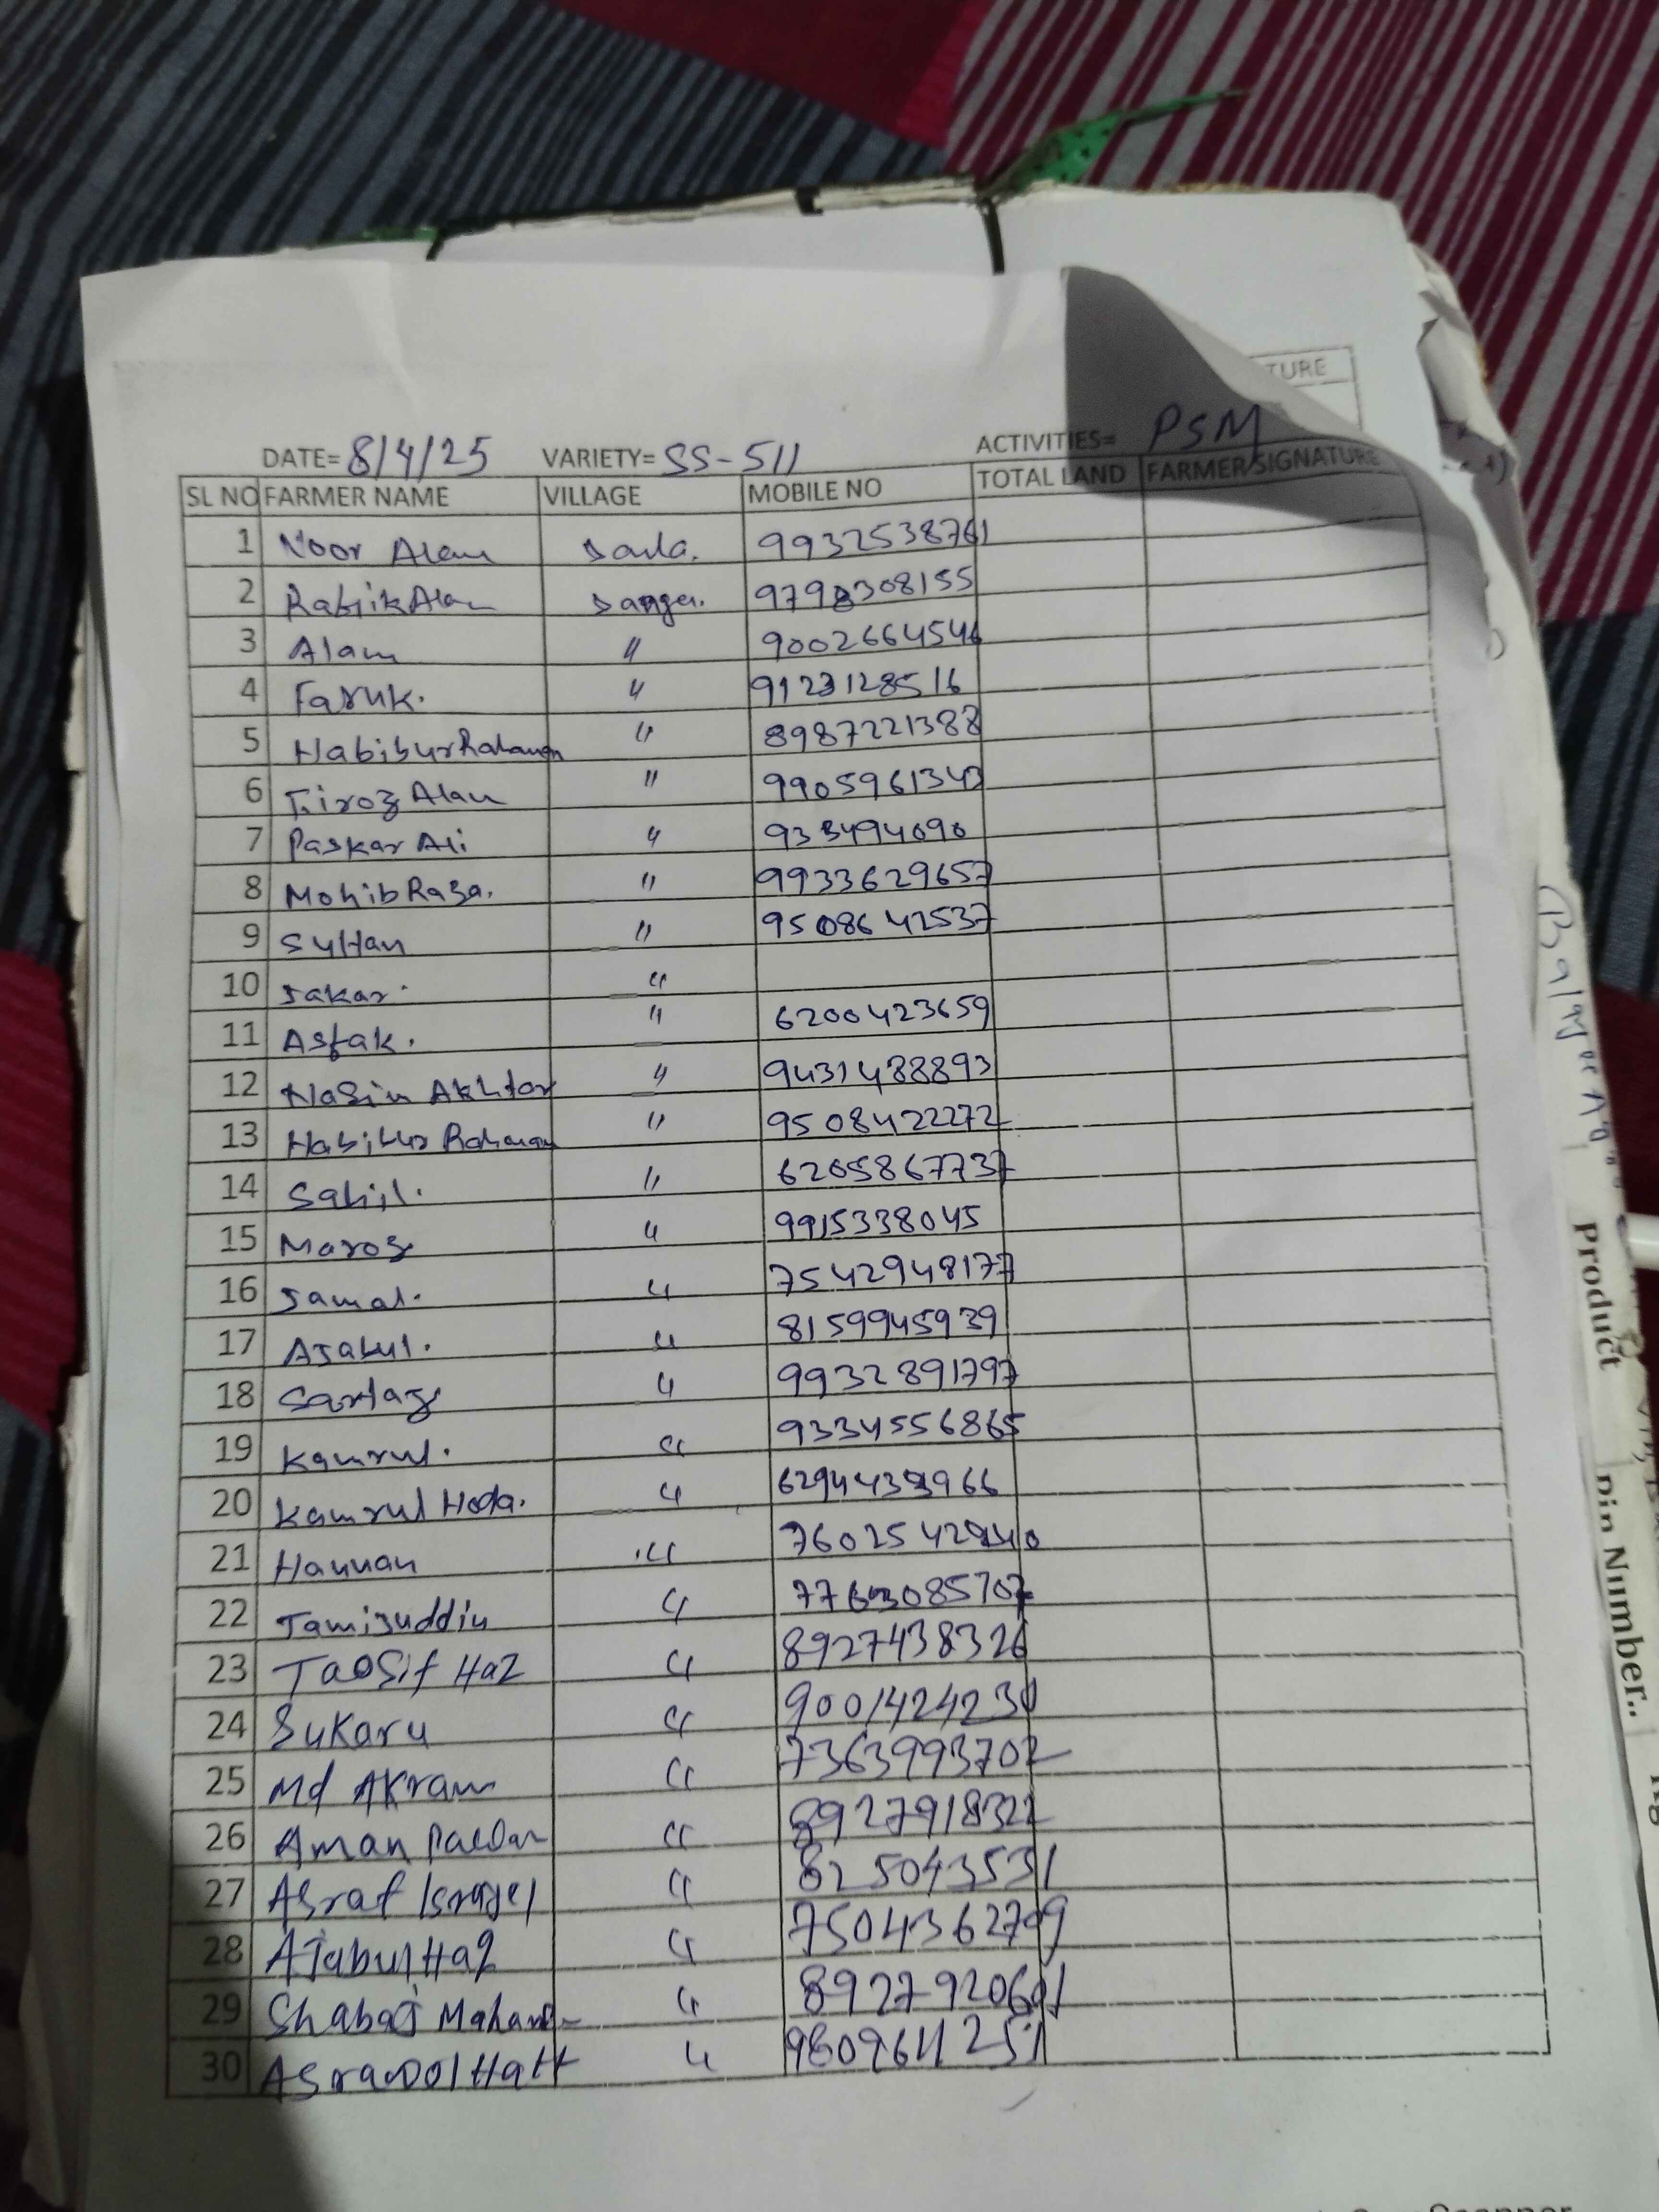 TURE
DATE= 8/4/25 VARIETY= SS-511 ACTIVITIES= PSM
SL NO FARMER NAME VILLAGE MOBILE NO TOTAL LAND FARMER SIGNATURE
1 Noor Alam 9932538761
2 Rafik Alam 9798308155
3 Alam " 9002664546
4 Faruk. " 9123128516
5 Habibur Rahaman " 8987221388
6 Firoz Alam " 9905961343
7 Paskar Ali "
8 Mohib Raza. " 9933629657
9 Sultan " 9508642537
10 Jakar. "
11 Asfak. " 6200423659
12 Nasim Akhtar " 9431488893
13 Habibur Rahaman " 9508422272
14 Sahil. " 6205867737
15 Maroz " 9915338045
16 Jamal. " 7542948177
17 Ajabul. " 8159945939
18 Sartaz " 9932891797
19 Kamrul. " 9334556865
20 Kamrul Hoda. "
21 Hannan "
22 Tamizuddin "
23 Taosif Haz " 8927438326
24 Sukaru " 9001424230
25 Md Akram " 7363993702
26 Aman " 8927918322
27 Asraf " 825043531
28 Ajabul Haq " 7504362709
29 Shabaj "
30 "
Product
Pin Number..